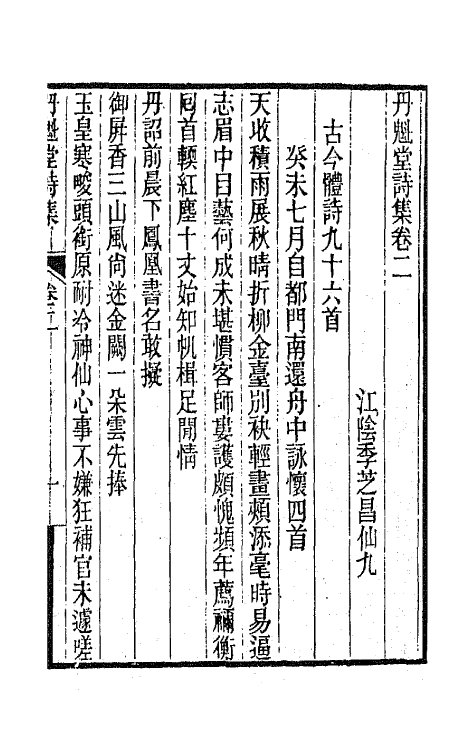 丹魁堂詩集卷二
江陰季芝昌仙九
古今體詩九十六首
癸未七月自都門南還舟中詠懷四首
天收積雨展秋晴折柳金臺別袂輕畫頰添毫時易逼
志眉中目藝何成未堪慣客師婁護頗愧頻年薦禰衡
囘首輭紅塵十丈始知帆楫足閒情
丹詔前晨下鳳凰書名敢擬
御屏香三山風尙迷金闕一朶雲先捧
玉皇寒畯頭銜原耐冷神仙心事不嫌狂補官未遽嗟
丹魁堂詩集
卷二
一